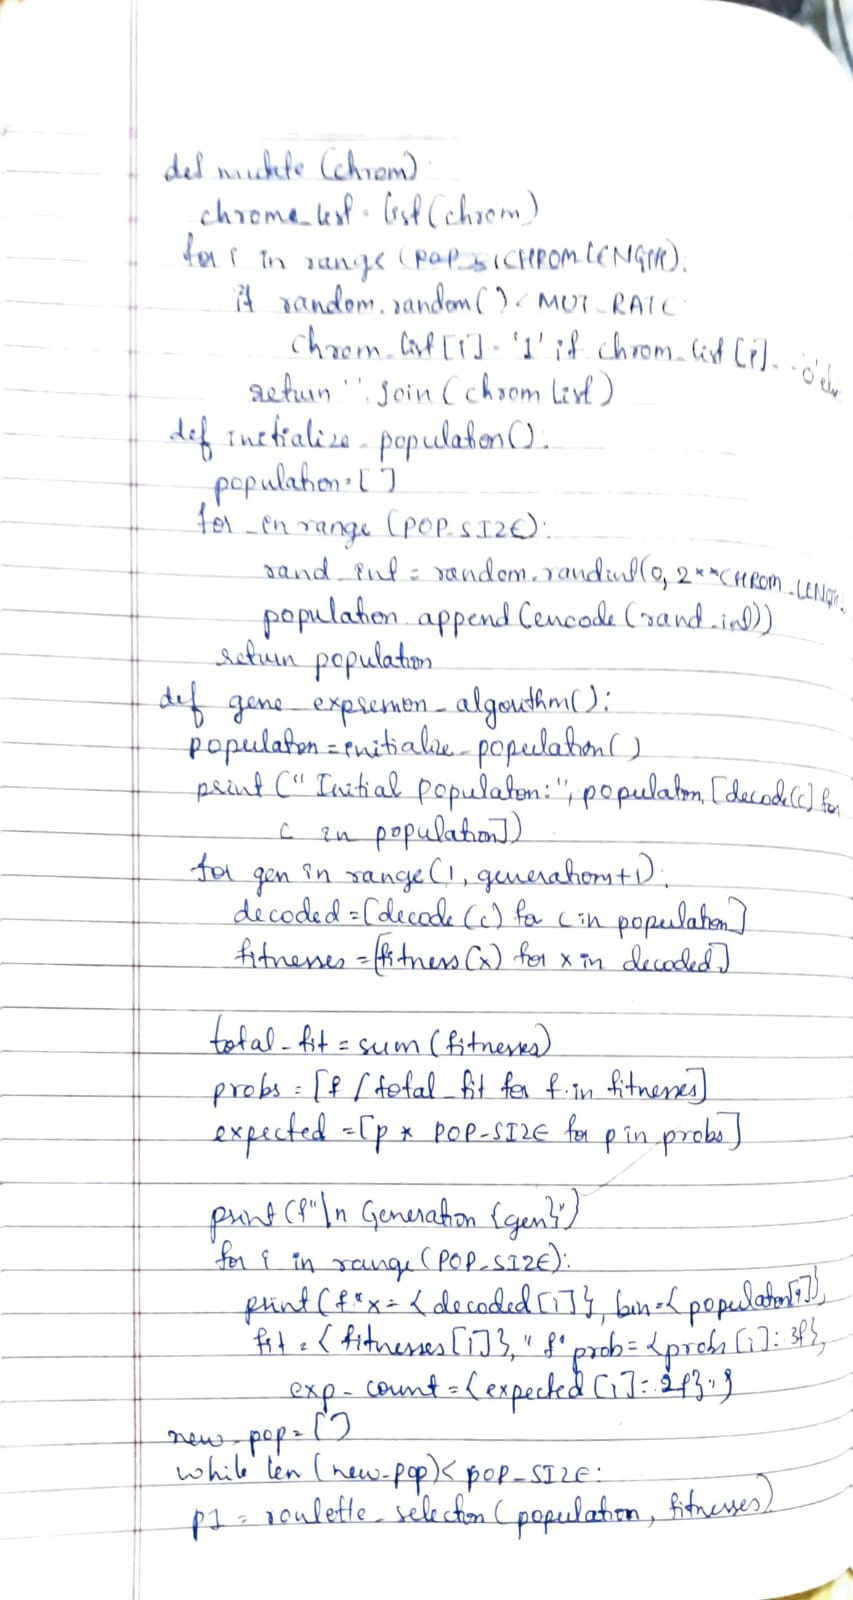 def mutate (chrom)
chrome_list = list(chrom)
for i in range (CHROM LENGTH):
if random.random() < MUT_RATE
chrom_list [i] = '1' if chrom_list [i] == '0' else
return ''.join (chrom list)
def initialize_population():
population = [ ]
for _ in range (POP_SIZE):
rand_int = random.randint(0, 2**CHROM_LENGTH
population.append (encode (rand_int))
return population
def gene_expression_algorithm():
population = initialize_population()
print ("Initial population:", population, [decode(c) for
c in population])
for gen in range (1, generations+1):
decoded = [decode (c) for c in population]
fitnesses = [fitness (x) for x in decoded]
total_fit = sum (fitnesses)
probs = [f / total_fit for f in fitnesses]
expected = [p * POP_SIZE for p in probs]
print (f"\n Generation {gen}")
for i in range (POP_SIZE):
print (f"x = {decoded [i]}, bin = {population[i]},
fit = {fitnesses [i]}," f" prob = {probs [i]:.3f},
exp_count = {expected [i]:.2f}")
new_pop = []
while len (new_pop) < POP_SIZE:
p1 = roulette_selection (population, fitnesses)